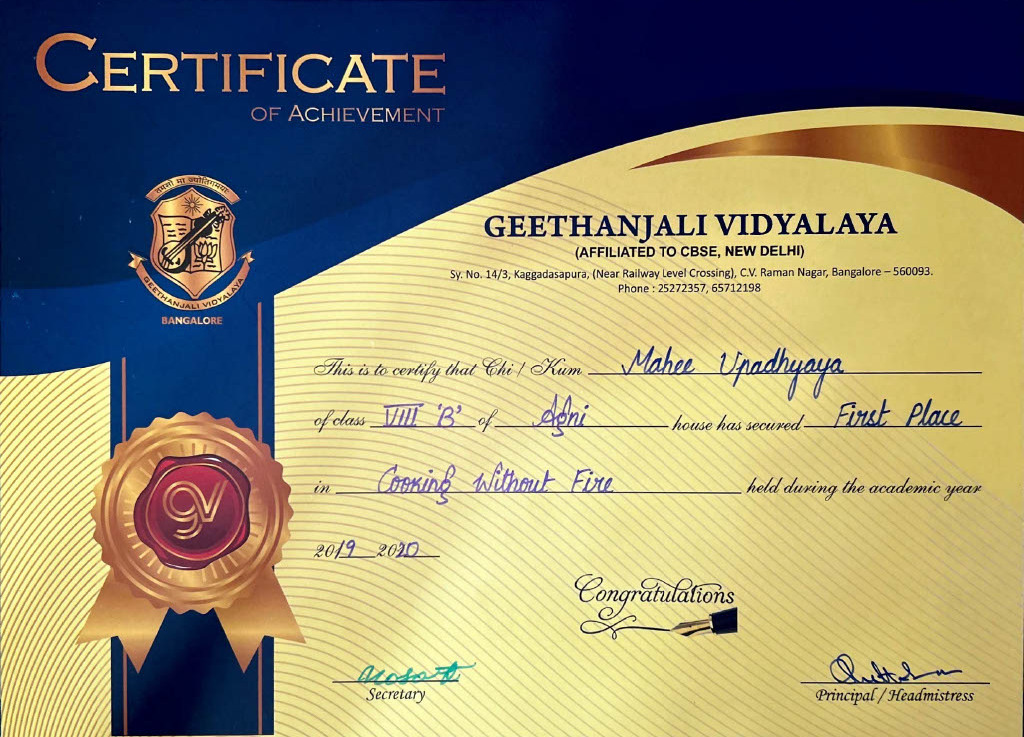 CERTIFICATE
OF ACHIEVEMENT
तमसो मा ज्योतिर्गमयः
GEETHANJALI VIDYALAYA
BANGALORE
GEETHANJALI VIDYALAYA
(AFFILIATED TO CBSE, NEW DELHI)
Sy. No. 14/3, Kaggadasapura, (Near Railway Level Crossing), C.V. Raman Nagar, Bangalore – 560093.
Phone : 25272357, 65712198
This is to certify that Chi / Kum Mahee Upadhyaya
of class VIII 'B' of Agni house has secured First Place
in Cooking Without Fire held during the academic year
2019 2020
gv
Congratulations
Secretary
Principal / Headmistress